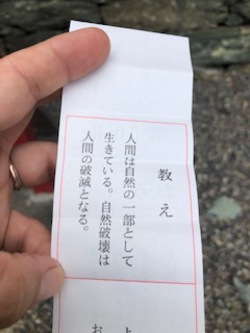 教え
人間は自然の一部として
生きている。自然破壊は
人間の破滅となる。
よ
お